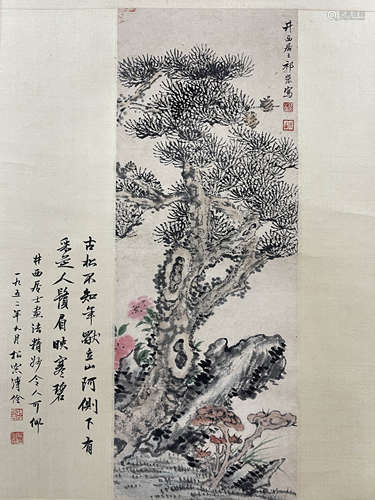 井西居士祁崑寫
古松不知年獨立山阿側下有
采芝人鬚眉映寒碧
井西居士画法精妙令人可佩
一九五二年九月松窗溥佺